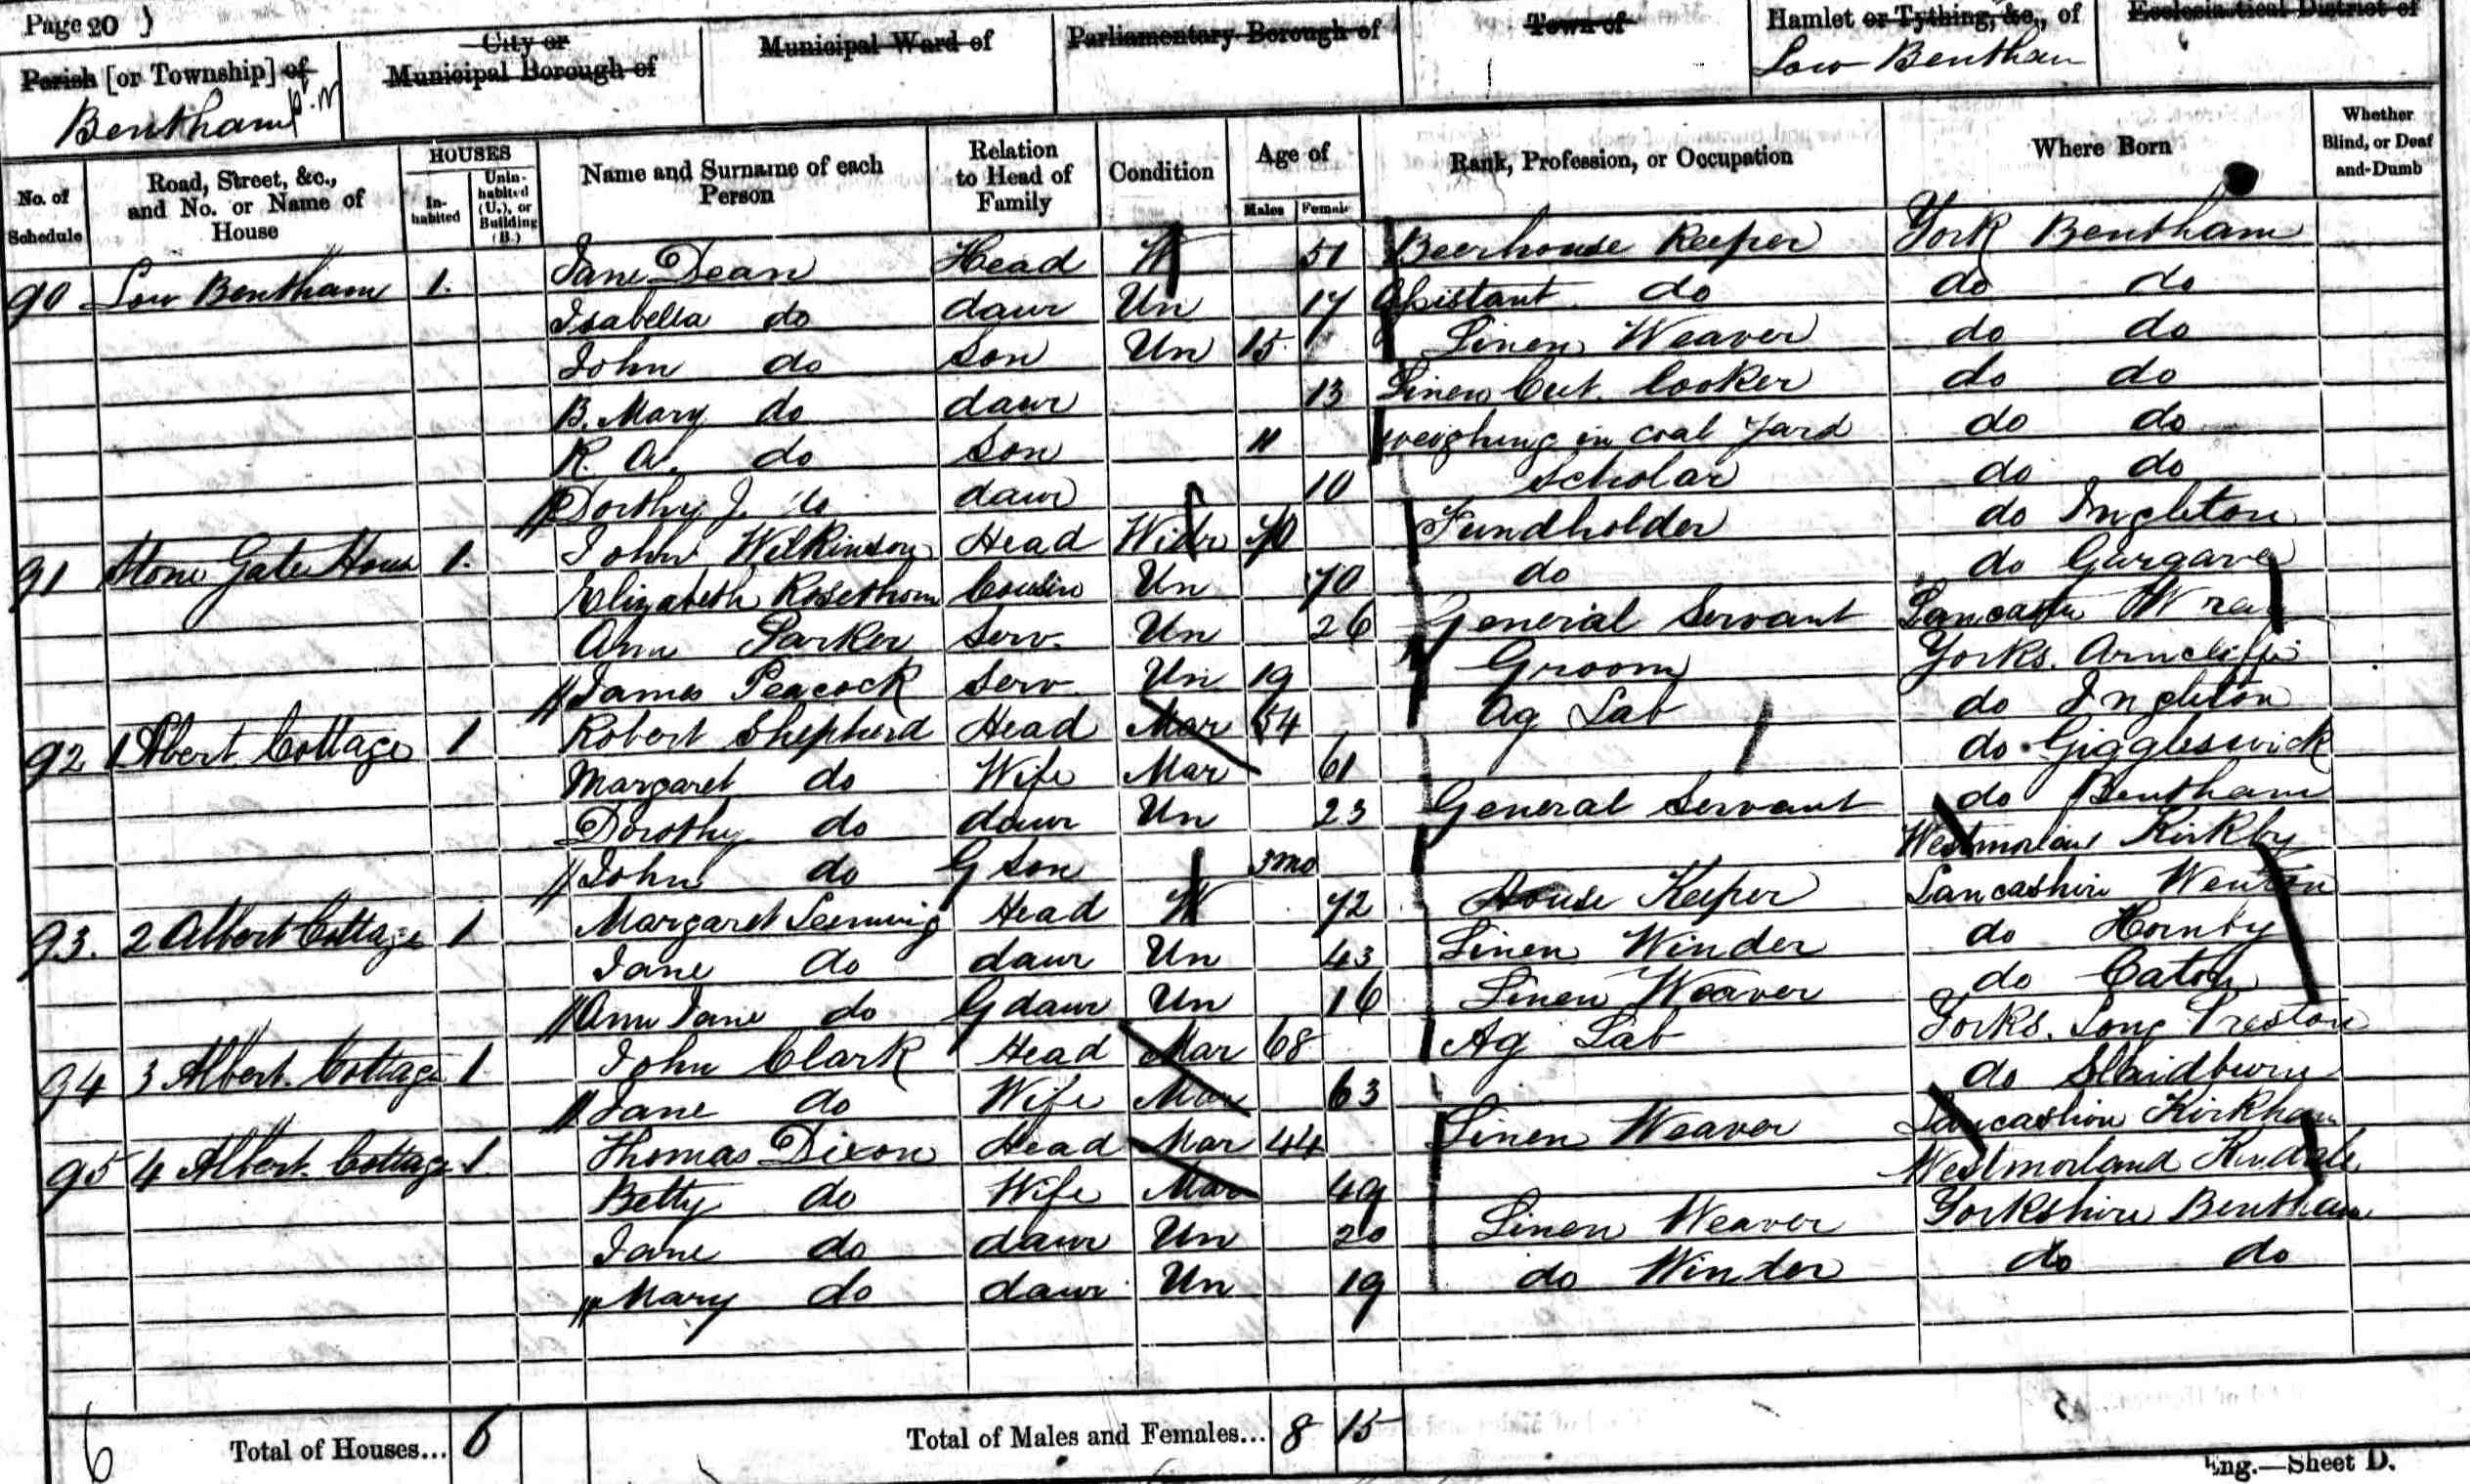 Page 20 )
Parish [or Township] of
Bentham
City or
Municipal Borough of
Municipal Ward of
Parliamentary Borough of
Town of
Hamlet or Tything, &c., of
Low Bentham
Ecclesiastical District of
No. of Schedule
Road, Street, &c., and No. or Name of House
HOUSES
In-habited
Unin-habited (U.), or Building (B.)
Name and Surname of each Person
Relation to Head of Family
Condition
Age of
Males
Females
Rank, Profession, or Occupation
Where Born
Whether Blind, or Deaf-and-Dumb
90 Low Bentham 1. Jane Dean Head W 51 Beerhouse Keeper York Bentham
Isabella do daur Un 17 Assistant do do do
John do Son Un 15 Linen Weaver do do
B. Mary do daur 13 Linen Cut Looker do do
R. A. do Son 11 weighing in coal yard do do
Dorthy J. do daur 10 Scholar do do
91 Stone Gate House 1. John Wilkinson Head Widr 70 Fundholder do Ingleton
Elizabeth Rosethorn Cousin Un 70 do do Gargave
Ann Parker Serv. Un 26 General Servant Lancaster Wray
James Peacock Serv Un 19 Groom Yorks. Arncliffe
92 1 Albert Cottage 1 Robert Shepherd Head Mar 54 Ag Lab do Ingleton
Margaret do Wife Mar 61 do Giggleswick
Dorothy do daur Un 23 General Servant do Bentham
John do G Son 3 mo Westmorland Kirkby
93. 2 Albert Cottage 1 Margaret Leeming Head W 72 House Keeper Lancashire
Jane do daur Un 43 Linen Winder do Hornby
Ann Jane do G daur Un 16 Linen Weaver do Caton
94 3 Albert Cottage 1 John Clark Head Mar 68 Ag Lab Yorks. Long Preston
Jane do Wife Mar 63 do Slaidburn
95 4 Albert Cottage 1 Thomas Dixon Head Mar 44 Linen Weaver Lancashire Kirkham
Betty do Wife Mar 49 Westmorland
Jane do daur Un 20 Linen Weaver Yorkshire Bentham
Mary do daur Un 19 do Winder do do
6 Total of Houses... 6 Total of Males and Females... 8 15
Eng.—Sheet D.